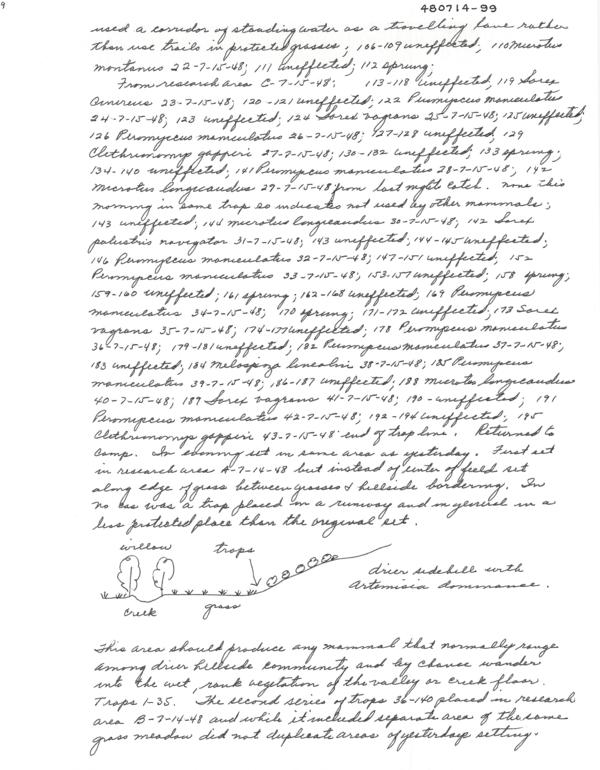 9
480714-99
used a corridor of standing water as a travelling lane rather
than use trails in protected grasses; 106-109 uneffected, 110 Microtus
montanus 22-7-15-48; 111 uneffected; 112 sprung;
From research area C-7-15-48: 113-118 uneffected, 119 Sorex
cinereus 23-7-15-48; 120-121 uneffected; 122 Peromyscus maniculatus
24-7-15-48; 123 uneffected; 124 Sorex vagrans 25-7-15-48; 125 uneffected;
126 Peromyscus maniculatus 26-7-15-48; 127-128 uneffected, 129
Clethrionomys gapperi 27-7-15-48; 130-132 uneffected; 133 sprung;
134-140 uneffected; 141 Peromyscus maniculatus 28-7-15-48; 142
Microtus longicaudus 29-7-15-48 from last night catch. none this
morning in same trap so indicates not used by other mammals;
143 uneffected; 144 microtus longicaudus 30-7-15-48; 142 Sorex
palustris navigator 31-7-15-48; 143 uneffected; 144-145 uneffected;
146 Peromyscus maniculatus 32-7-15-48; 147-151 uneffected, 152
Peromyscus maniculatus 33-7-15-48; 153-157 uneffected; 158 sprung;
159-160 uneffected; 161 sprung; 162-168 uneffected; 169 Peromyscus
maniculatus 34-7-15-48; 170 sprung; 171-172 uneffected; 173 Sorex
vagrans 35-7-15-48; 174-177 uneffected; 178 Peromyscus maniculatus
36-7-15-48; 179-181 uneffected; 182 Peromyscus maniculatus 37-7-15-48;
183 uneffected; 184 Melospiza lincolni 38-7-15-48; 185 Peromyscus
maniculatus 39-7-15-48; 186-187 uneffected; 188 Microtus longicaudus
40-7-15-48; 189 Sorex vagrans 41-7-15-48; 190-uneffected; 191
Peromyscus maniculatus 42-7-15-48; 192-194 uneffected; 195
Clethrionomys gapperi 43-7-15-48 end of trap line. Returned to
Camp. In evening set in same area as yesterday. First set
in research area A-7-14-48 but instead of center of field set
along edge of grass between grasses & hillside bordering. In
no case was a trap placed in a runway and in general in a
less protected place than the original set.
willow traps
drier sidehill with
Artemisia dominance.
creek grass
This area should produce any mammal that normally range
among drier hillside community and by chance wander
into the wet, rank vegetation of the valley or creek floor.
Traps 1-35. The second series of traps 36-140 placed in research
area B-7-14-48 and while it included separate area of the same
grass meadow did not duplicate areas of yesterdays setting.